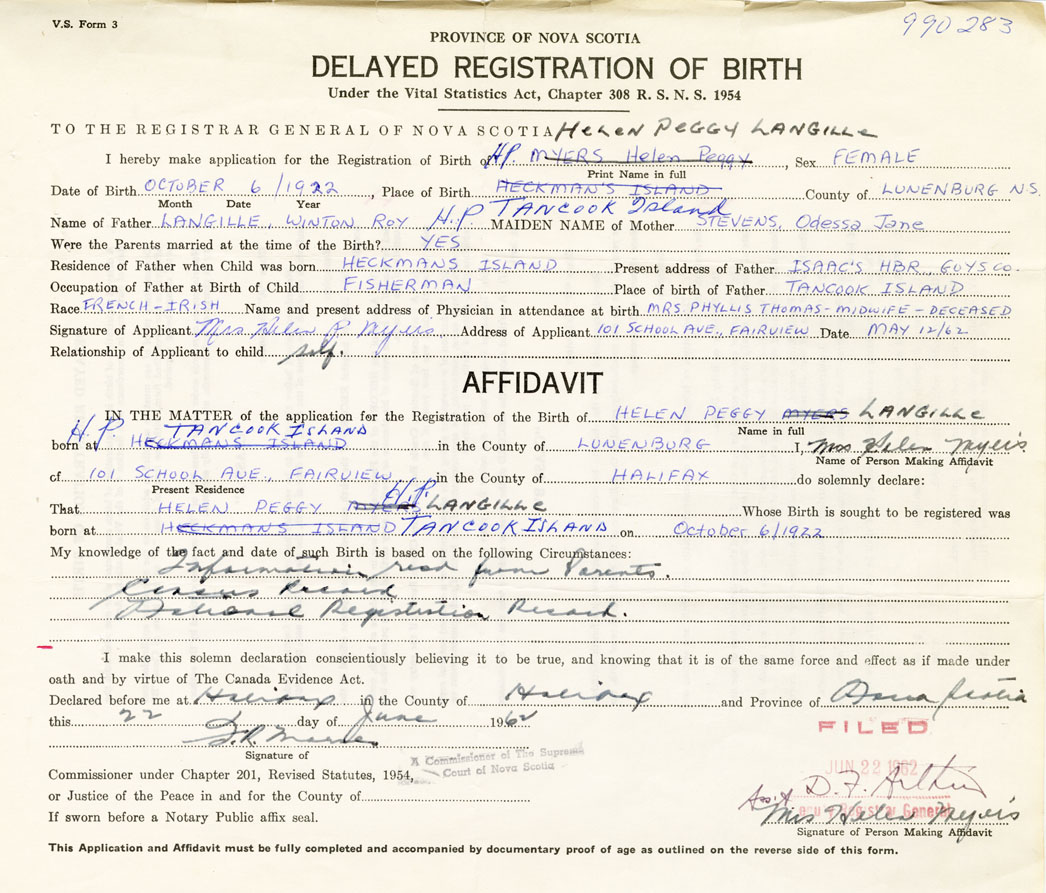 V.S. Form 3
990283
PROVINCE OF NOVA SCOTIA
DELAYED REGISTRATION OF BIRTH
Under the Vital Statistics Act, Chapter 308 R. S. N. S. 1954
TO THE REGISTRAR GENERAL OF NOVA SCOTIA HELEN PEGGY LANGILLE
I hereby make application for the Registration of Birth of H.P. MYERS Helen Peggy, Sex FEMALE
Print Name in full
Date of Birth OCTOBER 6/1922, Place of Birth HECKMAN'S ISLAND County of LUNENBURG N.S.
Month Date Year
H.P TANCOOK Island
Name of Father LANGILLE, WINTON ROY MAIDEN NAME of Mother STEVENS, Odessa Jane
Were the Parents married at the time of the Birth? YES
Residence of Father when Child was born HECKMANS ISLAND Present address of Father ISAAC'S HBR., GUYS CO.
Occupation of Father at Birth of Child FISHERMAN Place of birth of Father TANCOOK ISLAND
Race FRENCH-IRISH Name and present address of Physician in attendance at birth MRS. PHYLLIS THOMAS - MIDWIFE - DECEASED
Signature of Applicant Mrs Helen P. Myers Address of Applicant 101 SCHOOL AVE., FAIRVIEW Date MAY 12/62
Relationship of Applicant to child self.
AFFIDAVIT
IN THE MATTER of the application for the Registration of the Birth of HELEN PEGGY MYERS LANGILLE
Name in full
H.P. TANCOOK ISLAND
born at HECKMANS ISLAND in the County of LUNENBURG I, Mrs Helen Myers
Name of Person Making Affidavit
of 101 SCHOOL AVE., FAIRVIEW, in the County of HALIFAX do solemnly declare:
Present Residence
H.P.
That HELEN PEGGY MYERS LANGILLE Whose Birth is sought to be registered was
born at HECKMANS ISLAND TANCOOK ISLAND on October 6/1922
My knowledge of the fact and date of such Birth is based on the following Circumstances:
Information recd from Parents.
Census Record
National Registration Record.
I make this solemn declaration conscientiously believing it to be true, and knowing that it is of the same force and effect as if made under
oath and by virtue of The Canada Evidence Act.
Declared before me at Halifax in the County of Halifax and Province of Nova Scotia
this 22 day of June 1962
FILED
Signature of
A Commissioner of The Supreme
Court of Nova Scotia
JUN 22 1962
Commissioner under Chapter 201, Revised Statutes, 1954,
D. F. Arthur
or Justice of the Peace in and for the County of
Registrar General
If sworn before a Notary Public affix seal.
Mrs Helen Myers
Signature of Person Making Affidavit
This Application and Affidavit must be fully completed and accompanied by documentary proof of age as outlined on the reverse side of this form.